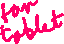 for
toblet